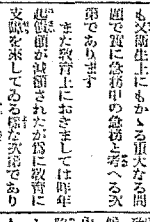 も又衛生上にもかゝる重大なる問
題で實に急務中の急務と考へる次
第であります
また教育上におきましては昨年
起債額が減額されたが爲に教育に
支障を來してゐる樣な次第であり